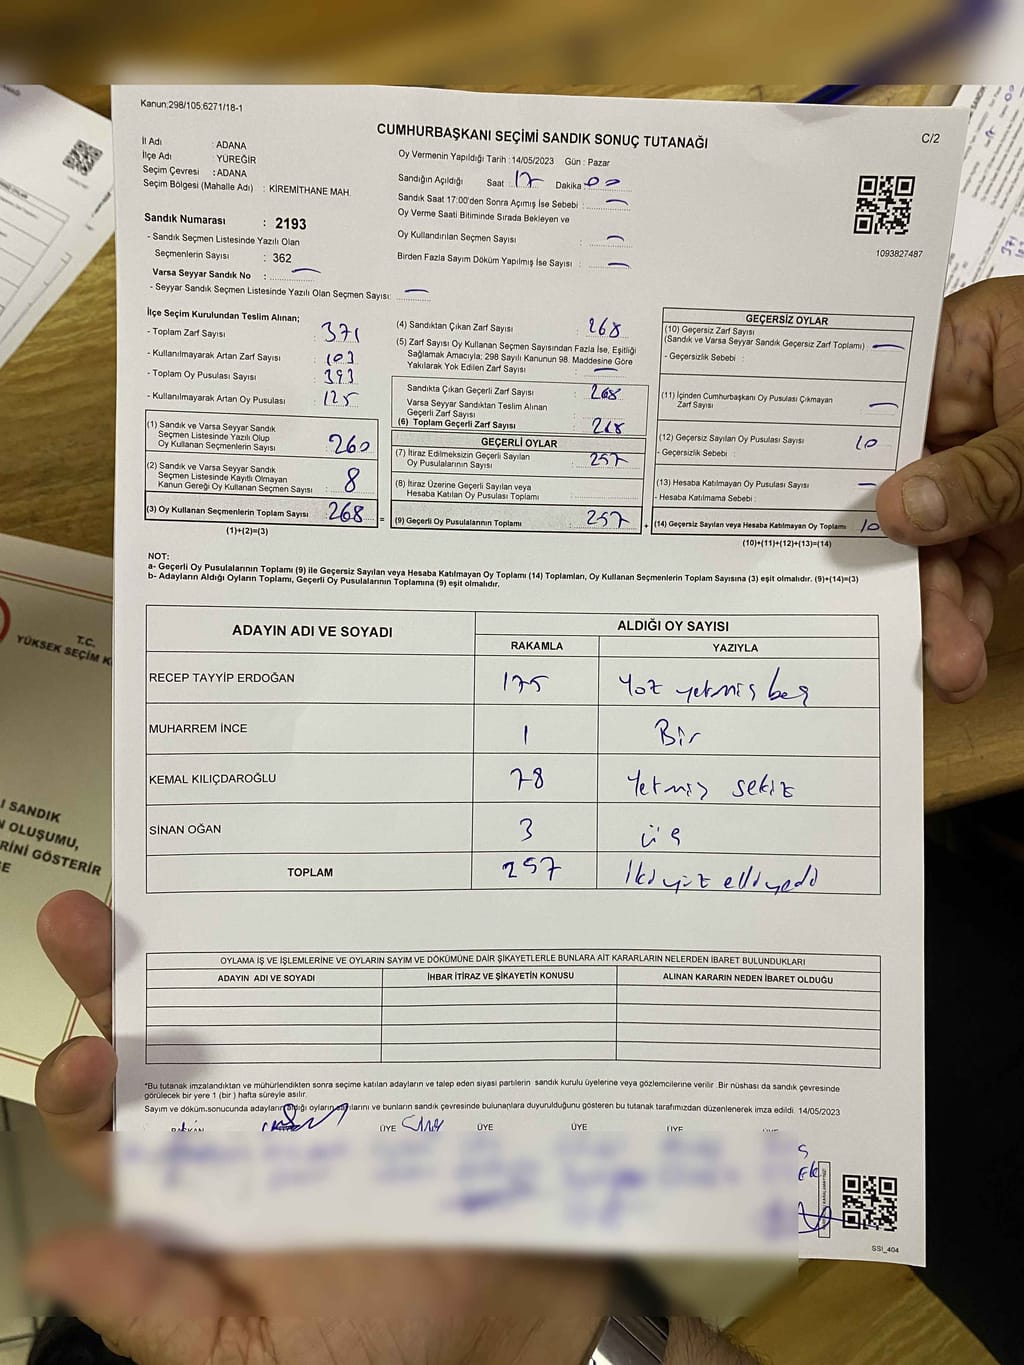 Kanun;298/105.6271/18-1
CUMHURBAŞKANI SEÇİMİ SANDIK SONUÇ TUTANAĞI
C/2
İl Adı : ADANA
İlçe Adı : YÜREĞİR
Seçim Çevresi : ADANA
Seçim Bölgesi (Mahalle Adı) : KİREMİTHANE MAH.
Sandık Numarası : 2193
- Sandık Seçmen Listesinde Yazılı Olan
Seçmenlerin Sayısı : 362
Varsa Seyyar Sandık No :
- Seyyar Sandık Seçmen Listesinde Yazılı Olan Seçmen Sayısı:
Oy Vermenin Yapıldığı Tarih : 14/05/2023 Gün : Pazar
Sandığın Açıldığı Saat 17 Dakika 00
Sandık Saat 17:00'den Sonra Açımış İse Sebebi :
Oy Verme Saati Bitiminde Sırada Bekleyen ve
Oy Kullandırılan Seçmen Sayısı :
Birden Fazla Sayım Döküm Yapılmış İse Sayısı :
1093827487
İlçe Seçim Kurulundan Teslim Alınan;
- Toplam Zarf Sayısı : 371
- Kullanılmayarak Artan Zarf Sayısı : 103
- Toplam Oy Pusulası Sayısı : 393
- Kullanılmayarak Artan Oy Pusulası : 125
(1) Sandık ve Varsa Seyyar Sandık
Seçmen Listesinde Yazılı Olup
Oy Kullanan Seçmenlerin Sayısı : 260
(2) Sandık ve Varsa Seyyar Sandık
Seçmen Listesinde Kayıtlı Olmayan
Kanun Gereği Oy Kullanan Seçmen Sayısı : 8
(3) Oy Kullanan Seçmenlerin Toplam Sayısı : 268
(1)+(2)=(3)
(4) Sandıktan Çıkan Zarf Sayısı : 268
(5) Zarf Sayısı Oy Kullanan Seçmen Sayısından Fazla İse, Eşitliği
Sağlamak Amacıyla; 298 Sayılı Kanunun 98. Maddesine Göre
Yakılarak Yok Edilen Zarf Sayısı :
Sandıkta Çıkan Geçerli Zarf Sayısı : 268
Varsa Seyyar Sandıktan Teslim Alınan
Geçerli Zarf Sayısı :
(6) Toplam Geçerli Zarf Sayısı : 268
GEÇERLİ OYLAR
(7) İtiraz Edilmeksizin Geçerli Sayılan
Oy Pusulalarının Sayısı : 257
(8) İtiraz Üzerine Geçerli Sayılan veya
Hesaba Katılan Oy Pusulası Toplamı :
= (9) Geçerli Oy Pusulalarının Toplamı : 257 +
GEÇERSİZ OYLAR
(10) Geçersiz Zarf Sayısı
(Sandık ve Varsa Seyyar Sandık Geçersiz Zarf Toplamı)
- Geçersizlik Sebebi :
(11) İçinden Cumhurbaşkanı Oy Pusulası Çıkmayan
Zarf Sayısı
(12) Geçersiz Sayılan Oy Pusulası Sayısı 10
- Geçersizlik Sebebi :
(13) Hesaba Katılmayan Oy Pusulası Sayısı
- Hesaba Katılmama Sebebi :
(14) Geçersiz Sayılan veya Hesaba Katılmayan Oy Toplamı 10
(10)+(11)+(12)+(13)=(14)
NOT:
a- Geçerli Oy Pusulalarının Toplamı (9) ile Geçersiz Sayılan veya Hesaba Katılmayan Oy Toplamı (14) Toplamları, Oy Kullanan Seçmenlerin Toplam Sayısına (3) eşit olmalıdır. (9)+(14)=(3)
b- Adayların Aldığı Oyların Toplamı, Geçerli Oy Pusulalarının Toplamına (9) eşit olmalıdır.
ADAYIN ADI VE SOYADI ALDIĞI OY SAYISI
RAKAMLA YAZIYLA
RECEP TAYYİP ERDOĞAN 175 Yüz yetmiş beş
MUHARREM İNCE 1 Bir
KEMAL KILIÇDAROĞLU 78 Yetmiş sekiz
SİNAN OĞAN 3 üç
TOPLAM 257 İkiyüz elliyedi
OYLAMA İŞ VE İŞLEMLERİNE VE OYLARIN SAYIM VE DÖKÜMÜNE DAİR ŞİKAYETLERLE BUNLARA AİT KARARLARIN NELERDEN İBARET BULUNDUKLARI
ADAYIN ADI VE SOYADI İHBAR İTİRAZ VE ŞİKAYETİN KONUSU ALINAN KARARIN NEDEN İBARET OLDUĞU
*Bu tutanak imzalandıktan ve mühürlendikten sonra seçime katılan adayların ve talep eden siyasi partilerin sandık kurulu üyelerine veya gözlemcilerine verilir .Bir nüshası da sandık çevresinde
görülecek bir yere 1 (bir ) hafta süreyle asılır.
Sayım ve döküm.sonucunda adayların aldığı oyların sayılarını ve bunların sandık çevresinde bulunanlara duyurulduğunu gösteren bu tutanak tarafımızdan düzenlenerek imza edildi. 14/05/2023
BAŞKAN ÜYE ÜYE ÜYE ÜYE
SSİ_404
T.C.
YÜKSEK SEÇİM K
I SANDIK
N OLUŞUMU,
RİNİ GÖSTERİR
GE